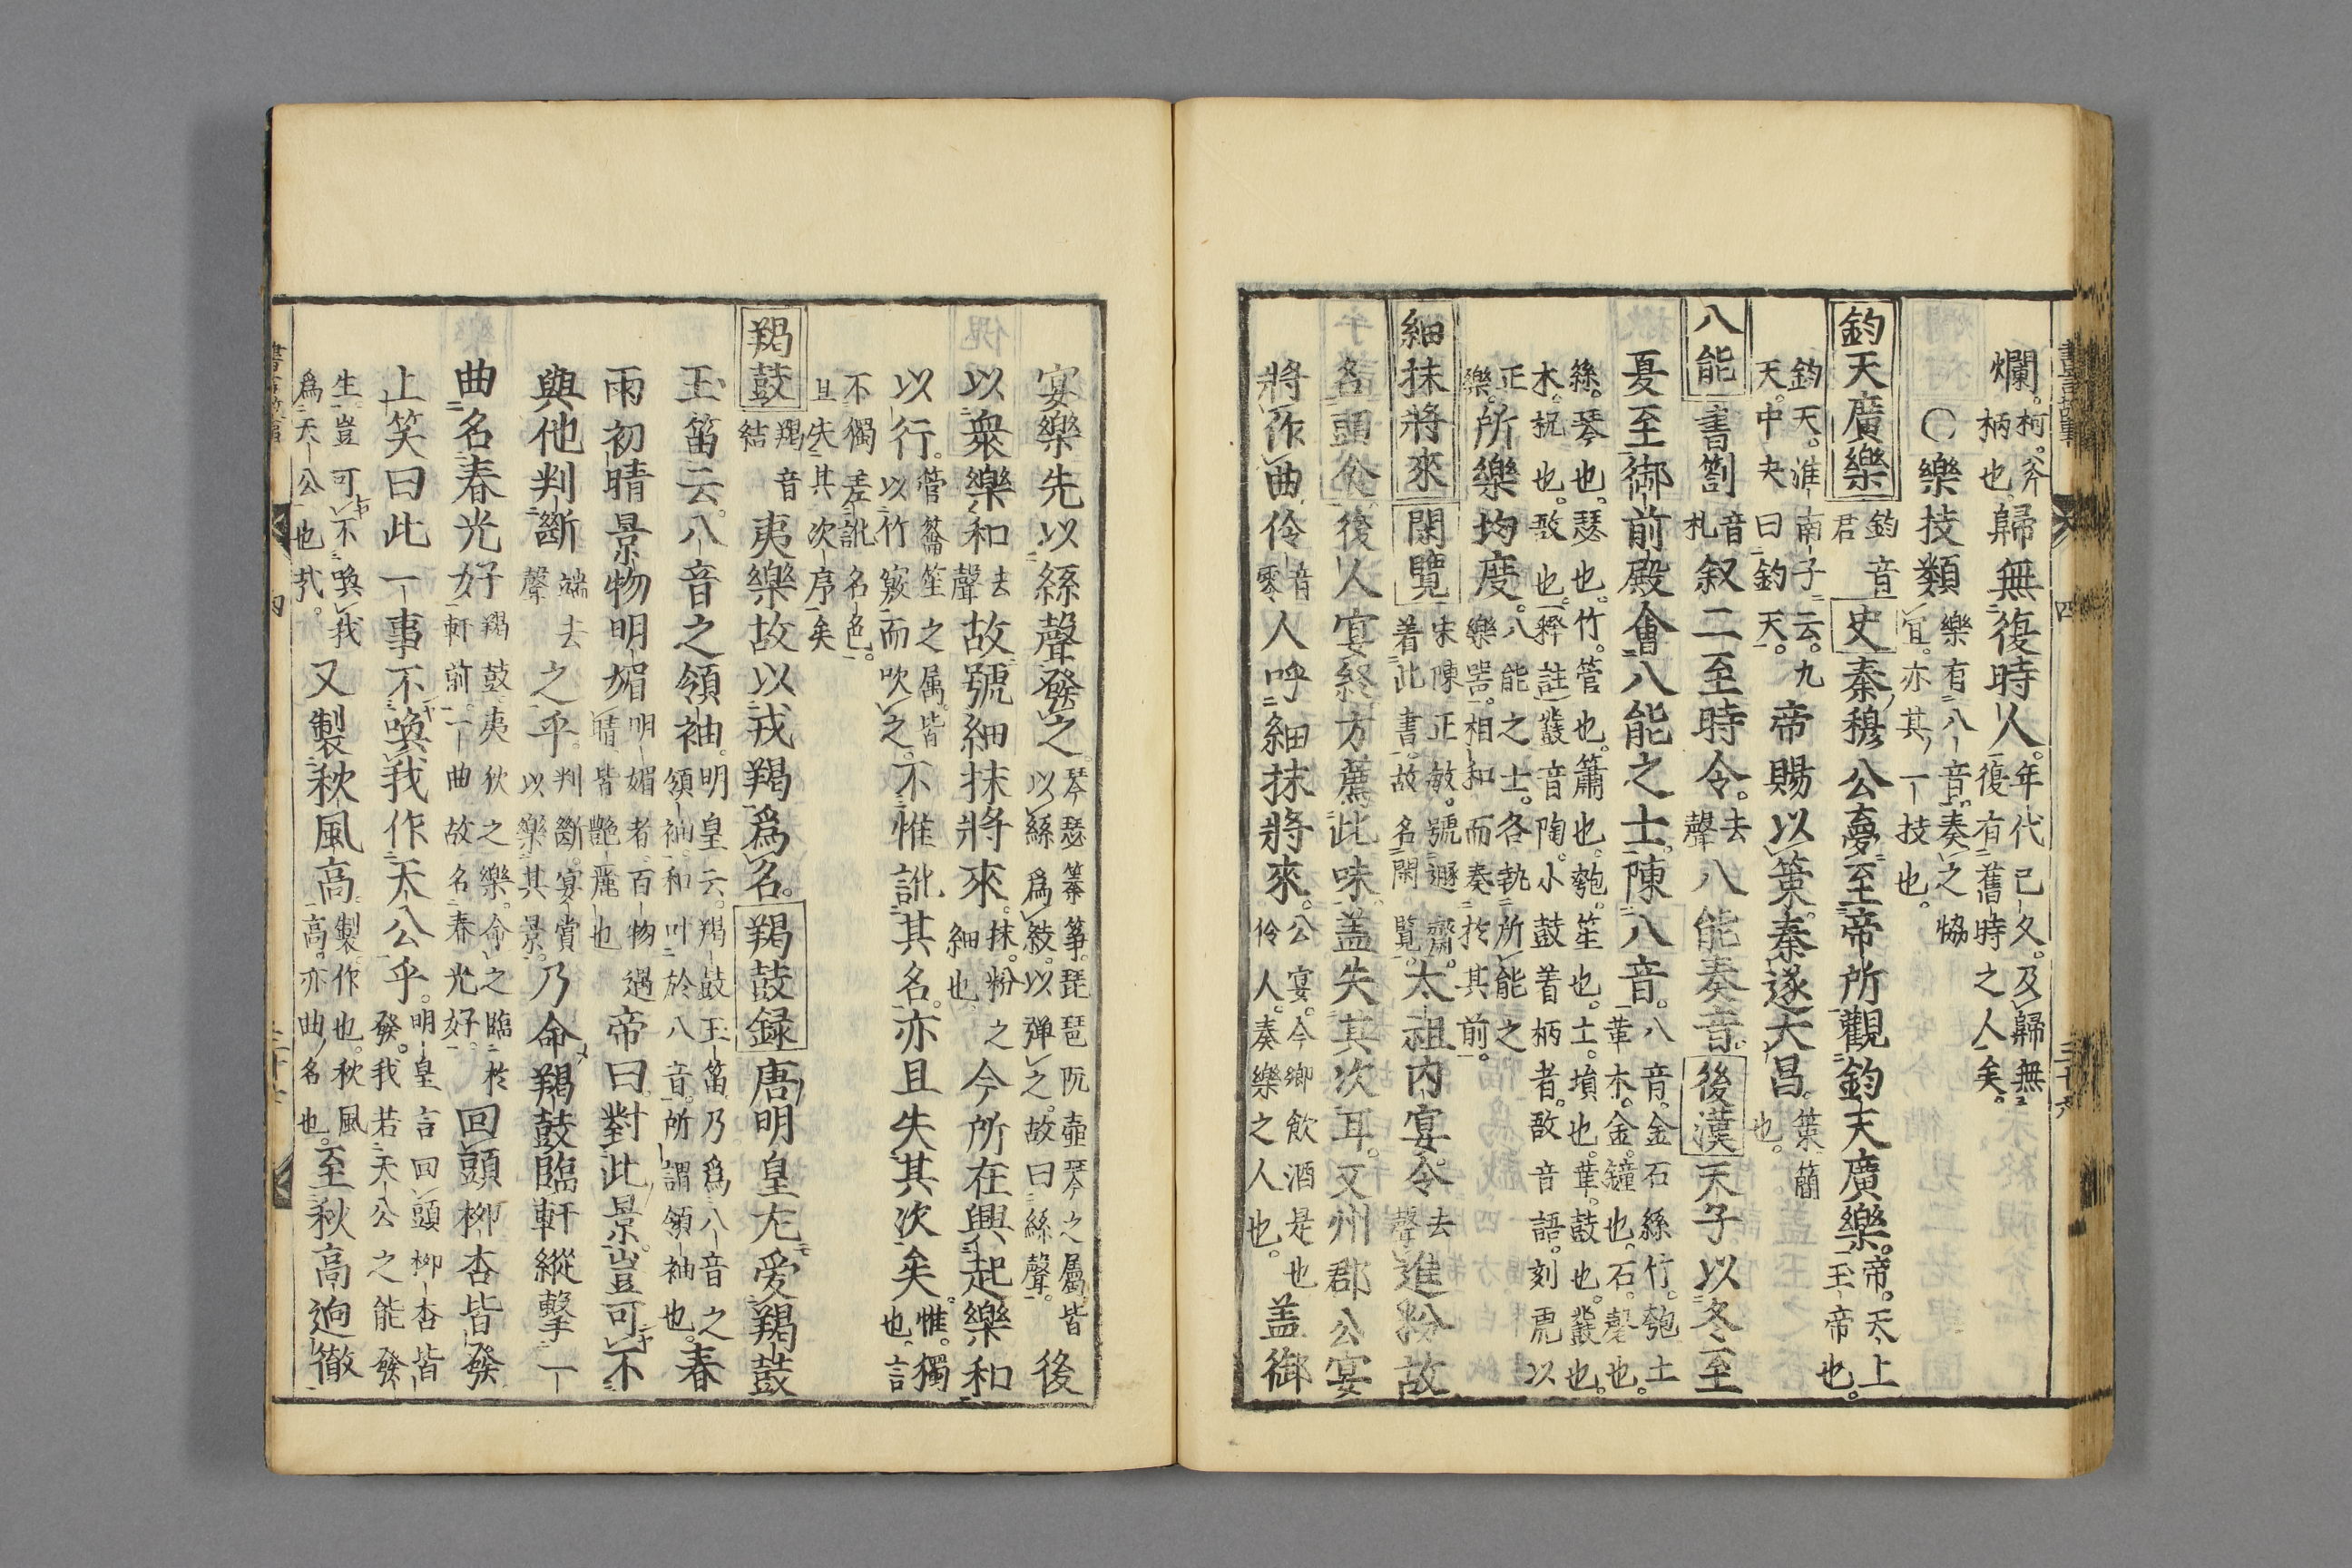 爛。柯。斧柄也。歸無復時人。年代已久。及歸無復有舊時之人矣。
〇樂技類樂有八音。奏之恊宜。亦其一技也。
鈞天廣樂鈞音君史秦穆公夢至帝所觀鈞天廣樂。帝。天上玉帝也。
鈞天。淮南子云。九天。中央曰鈞天。帝賜以策。秦遂大昌。策簡也。
八能書劄音札叙二至時令。去聲八能奏音。後漢天子以冬至
夏至御前殿會八能之士陳八音。八音。金石絲竹。匏土革木。金。鐘也。石。磬也。
絲。琴也。瑟也。竹。管也。簫也。匏。笙也。土。塤也。革。鼓也。鼗也。木。柷也。敔也。釋註鼗音陶。小鼓着柄者。敔音語。刻虎以
正樂。所樂均度。八能之士。各執所能之樂噐。相和而奏於其前。
細抹將來閑覽宋陳正敏。號遯齋。着此書。故名閑覽。太祖内宴。令去聲進粉故
各頭於後人宴終方薦此味盖失其次耳。又州郡公宴
將作曲伶音零人呼細抹將來。公宴。今鄉飲酒是也伶人。奏樂之人也。盖御
宴樂先以絲聲發之。琴瑟箏。琵琶阮壺琴之屬。皆以絲爲絃。以弹之。故曰絲聲。後
以衆樂和去聲故號細抹將來。抹。粉之細也今所在興起樂和
以行。管籥笙之属。皆以竹竅而吹之。不惟訛其名。亦且失其次矣。惟。獨也。言
不獨差訛名色。且失其次序矣
羯鼓羯音結夷樂故以戎羯爲名。羯鼓録唐明皇尤爱羯鼓
玉笛云。八音之領袖。明皇云。羯鼓玉笛乃爲八音之領袖。和叶於八音。所謂領袖也。春
雨初晴景物明媚明媚者。百物過晴皆艷麗也帝曰對此景豈可不
與他判斷端去聲之乎。判斷。宴賞以樂其景。乃命羯鼓臨軒縱擊一
曲名春光好羯鼓。夷狄之樂。命之臨於軒前。一曲故名春光好。回頭柳杏皆發
上笑曰此一事不喚我作天公乎。明皇言回頭柳杏皆發。我若天公之能發
生豈可不喚我爲天公也㢤。又製秋風高。製作也。秋風高。亦曲名也。至秋高逈徹